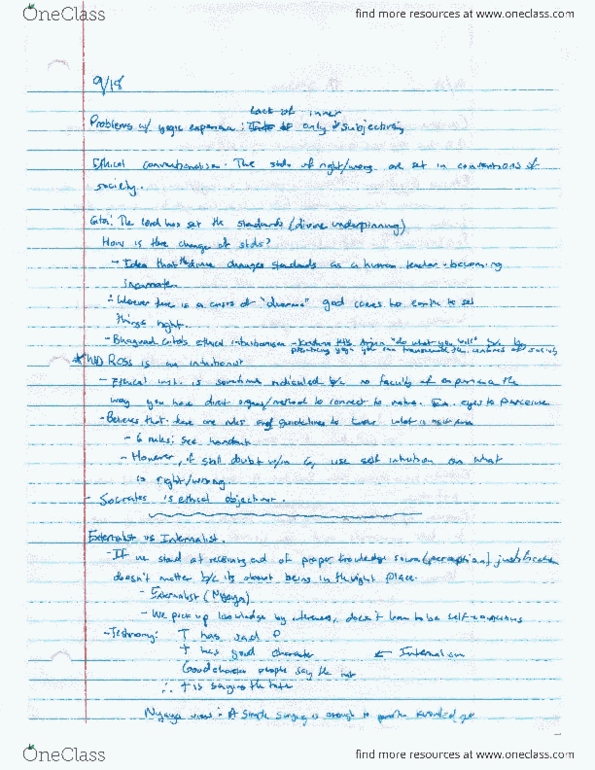 OneClass
find more resources at www.oneclass.com
9/18
Lack of inner
Problems w/ yogic experience: only subjectivity
Ethical conventionalism. The stds of right/wrong are set in conventions of
society.
Gita: The lord has set the standards (divine underpinning)
How is there change of stds?
- Idea that the divine changes standards as a human teacher - becoming
incarnate.
Whenever there is a crisis of "dharma" god comes to earth to set
things right.
- Bhagavad Gita's ethical intuitionism - Krishna tells Arjun "do what you will" b/c by
practicing yoga you can transcend the of society
* WD Ross is an intuitionist
- Ethical intui. is sometimes ridiculed b/c no faculty of experience the
way you have direct organ/method to connect to nature. Ex. eyes to perceive
- Believes that there are rules and guidelines to what is
- 6 rules: see handout
- However, if still doubt w/in 6, use self intuition on what
is right/wrong
- Socrates is ethical objectivist.
Externalist vs Internalist.
- If we stand at receiving end of proper knowledge source (perception) justification
doesn't matter b/c its about being in the right place.
- Externalist (Nyaya)
- We pick up knowledge by, doesn't have to be self-conscious
- Testimony: T has said P
T has good character ← Internalism
Good character people say the truth
∴ T is saying the truth
Nyaya view: A simple saying is enough to knowledge
1
OneClass
find more resources at www.oneclass.com